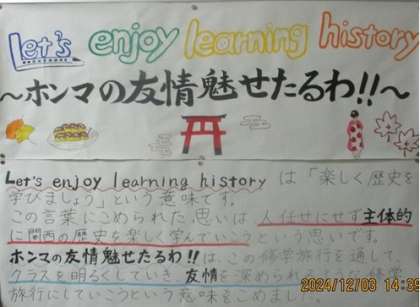 Let's enjoy learning history
～ホンマの友情魅せたるわ!!～
Let's enjoy learning history は「楽しく歴史を
学びましょう」という意味です。
この言葉にこめられた思いは人任せにせず主体的
に関西の歴史を楽しく学んでいこうという思いです。
ホンマの友情魅せたるわ!!は、この修学旅行を通して、
クラスを明るくしていき友情を深められる
旅行にしていこうという意味をこめまし
2024/12/03 14:35